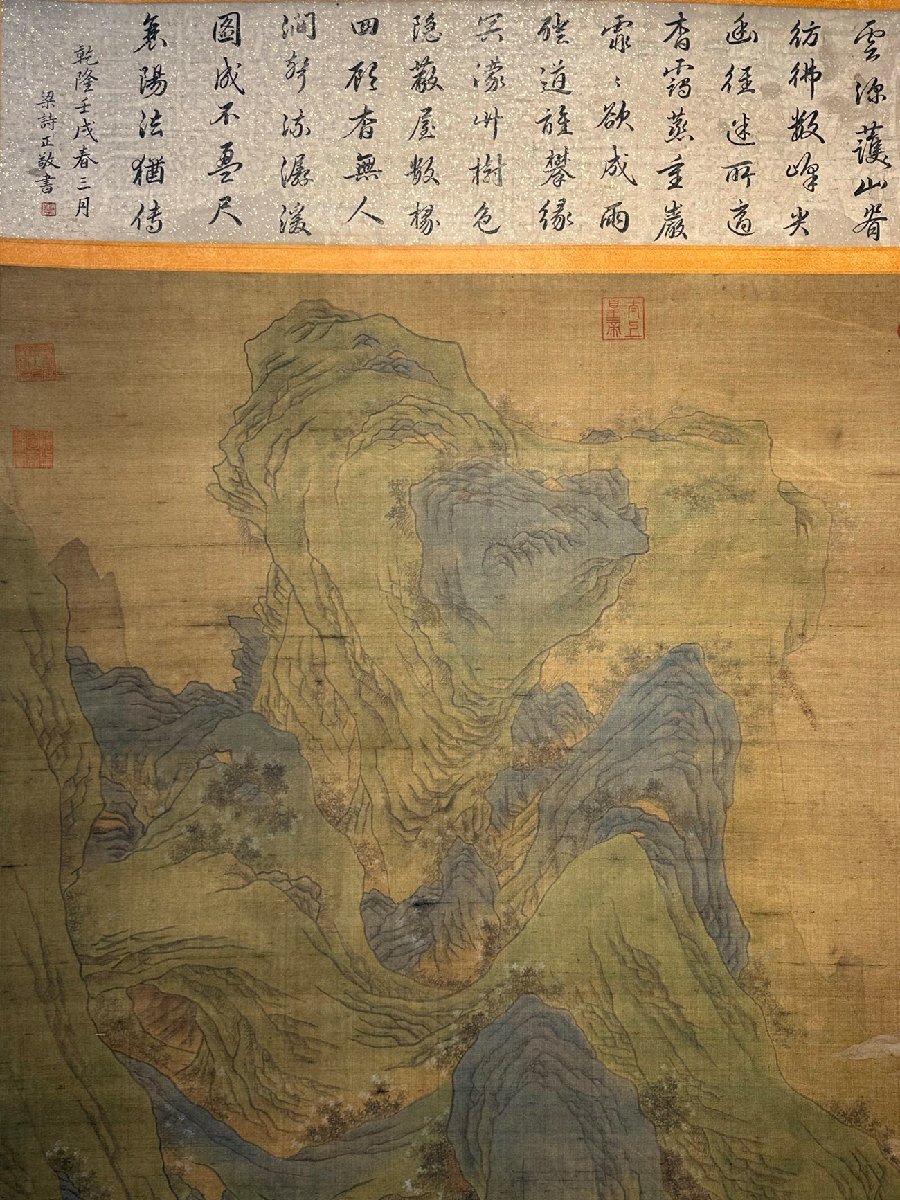 雲深護山脊
彷彿數峰尖
幽徑迷所適
杳靄蒸重巖
霏〻欲成雨
磴道誰攀緣
冥濛艸樹色
隱蔽屋數椽
四顧杳無人
澗聲流潺湲
圖成不盈尺
襄陽法猶傳
乾隆壬戌春三月
梁詩正敬書